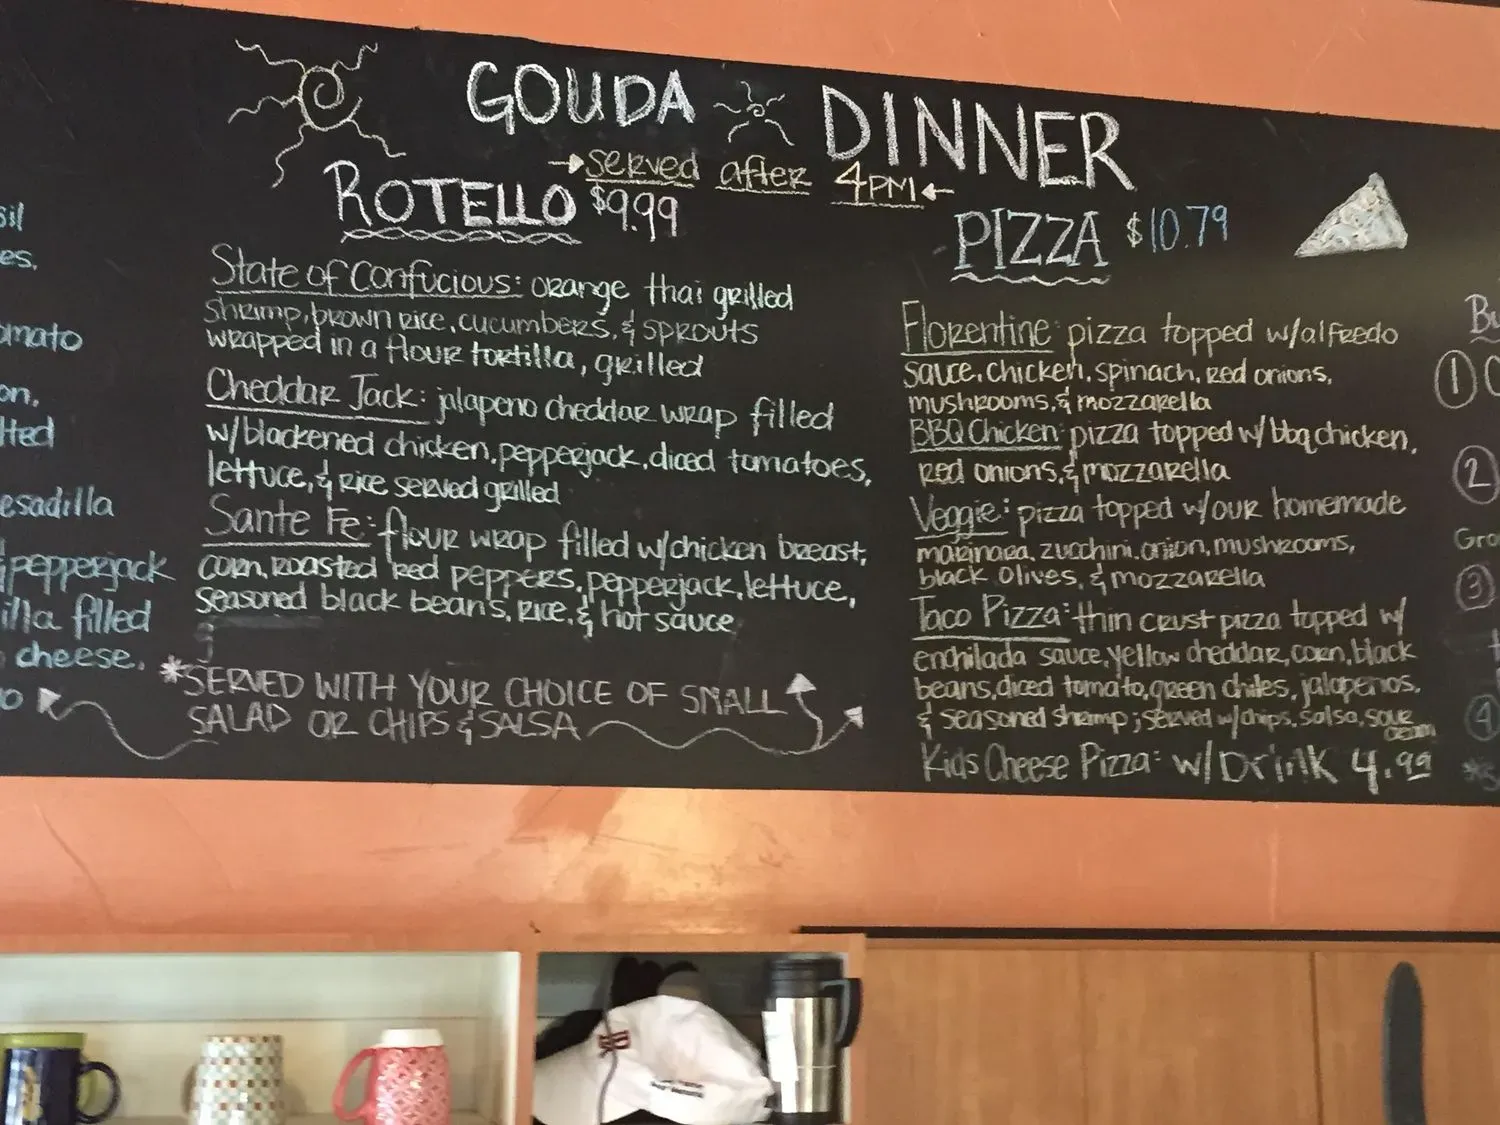 GOUDA DINNER
→ served after 4PM ←
ROTELLO $9.99
State of Confucious: orange thai grilled
shrimp, brown rice, cucumbers, & sprouts
wrapped in a flour tortilla, grilled
Cheddar Jack: jalapeno cheddar wrap filled
w/blackened chicken, pepperjack, diced tomatoes,
lettuce, & rice served grilled
Sante Fe: flour wrap filled w/chicken breast,
corn, roasted red peppers, pepperjack, lettuce,
seasoned black beans, rice, & hot sauce
*SERVED WITH YOUR CHOICE OF SMALL
SALAD OR CHIPS & SALSA
PIZZA $10.79
Florentine: pizza topped w/alfredo
sauce, chicken, spinach, red onions,
mushrooms, & mozzarella
BBQ Chicken: pizza topped w/bbq chicken,
red onions, & mozzarella
Veggie: pizza topped w/our homemade
marinara, zucchini, onion, mushrooms,
black olives, & mozzarella
Taco Pizza: thin crust pizza topped w/
enchilada sauce, yellow cheddar, corn, black
beans, diced tomato, green chiles, jalapenos,
& seasoned shrimp; served w/chips, salsa, sour
cream
Kids Cheese Pizza: w/ Drink 4.99
es,
on,
esadilla
pepperjack
filled
cheese.
1
2
3
4